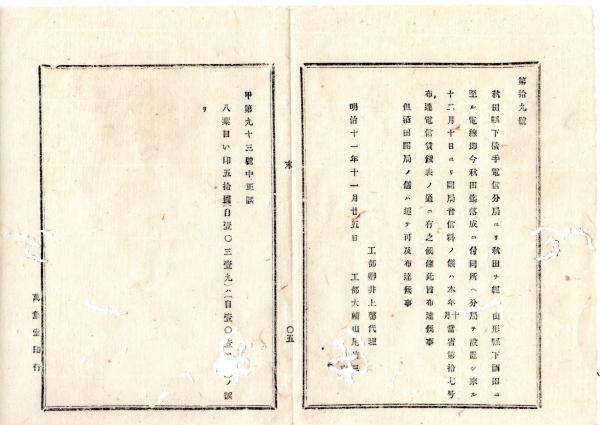 第拾九號
秋田縣下横手電信分局ヨリ秋田ヲ經テ山形縣下酒田ニ
至ル電線即今秋田迄落成ニ付同所ヘ分局ヲ設置シ來ル
十二月十日ヨリ開局音信料ノ儀ハ本年十月當省第拾七号
布達電信賃錢表ノ通ニ有之候條此旨布達候事
但酒田開局ノ儀ハ追テ可及布達候事
明治十一年十一月廿五日
工部卿井上馨代理
工部大輔山尾
末
〇五
甲第九十三號中正誤
八葉目い印五拾
自壹〇三壹九
ハ
自壹〇壹
ノ誤
リ
萬
堂印行